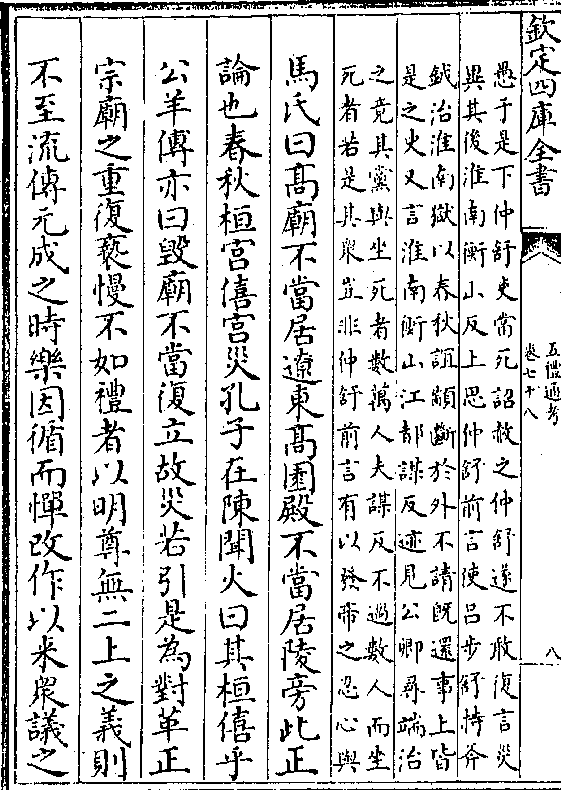 欽定四庫全書
五禮通考
卷七十八
八
愚于是下仲舒吏當死詔赦之仲舒遂不敢復言災
異其後淮南衡山反上思仲舒前言使吕步舒持斧
鉞治淮南獄以春秋誼顓斷於外不請既還事上皆
是之史又言淮南衡山江都謀反迹見公卿尋端治
之竟其黨與坐死者數萬人夫謀反不過數人而坐
死者若是其衆豈非仲舒前言有以發帝之忍心與
馬氏曰髙廟不當居遼東髙園殿不當居陵旁此正
論也春秋桓宫僖宫災孔子在陳聞火曰其桓僖乎
公羊傳亦曰毁廟不當復立故災若引是為對革正
宗廟之重復褻慢不如禮者以明尊無二上之義則
不至流傳元成之時樂因循而憚改作以來衆議之